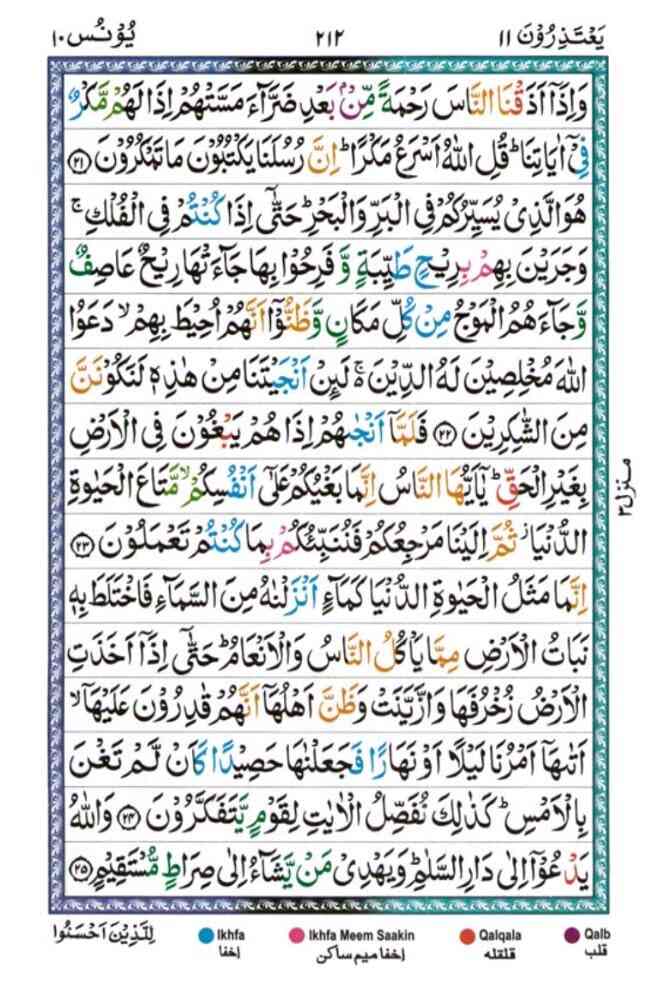 يَعْتَذِرُوْنَ ١١ ٢١٢ يُوْنُس ١٠
وَاِذَاۤ اَذَقْنَا النَّاسَ رَحْمَةً مِّنْۢ بَعْدِ ضَرَّآءَ مَسَّتْهُمْ اِذَا لَهُمْ مَّكْرٌ
فِىْۤ اٰيَاتِنَا ؕ قُلِ اللّٰهُ اَسْرَعُ مَكْرًا ؕ اِنَّ رُسُلَنَا يَكْتُبُوْنَ مَا تَمْكُرُوْنَ ۝٢١
هُوَ الَّذِىْ يُسَيِّرُكُمْ فِى الْبَرِّ وَالْبَحْرِ ؕ حَتّٰۤى اِذَا كُنْتُمْ فِى الْفُلْكِ ۚ
وَجَرَيْنَ بِهِمْ بِرِيْحٍ طَيِّبَةٍ وَّ فَرِحُوْا بِهَا جَآءَتْهَا رِيْحٌ عَاصِفٌ
وَّ جَآءَهُمُ الْمَوْجُ مِنْ كُلِّ مَكَانٍ وَّظَنُّوْۤا اَنَّهُمْ اُحِيْطَ بِهِمْ ۙ دَعَوُا
اللّٰهَ مُخْلِصِيْنَ لَهُ الدِّيْنَ ۚ۬ لَئِنْ اَنْجَيْتَنَا مِنْ هٰذِهٖ لَنَكُوْنَنَّ
مِنَ الشّٰكِرِيْنَ ۝٢٢ فَلَمَّاۤ اَنْجٰىهُمْ اِذَا هُمْ يَبْغُوْنَ فِى الْاَرْضِ
بِغَيْرِ الْحَقِّ ؕ يٰۤاَيُّهَا النَّاسُ اِنَّمَا بَغْيُكُمْ عَلٰٓى اَنْفُسِكُمْ ۙ مَّتَاعَ الْحَيٰوةِ
الدُّنْيَا ز ثُمَّ اِلَيْنَا مَرْجِعُكُمْ فَنُنَبِّئُكُمْ بِمَا كُنْتُمْ تَعْمَلُوْنَ ۝٢٣
اِنَّمَا مَثَلُ الْحَيٰوةِ الدُّنْيَا كَمَآءٍ اَنْزَلْنٰهُ مِنَ السَّمَآءِ فَاخْتَلَطَ بِهٖ
نَبَاتُ الْاَرْضِ مِمَّا يَاْكُلُ النَّاسُ وَالْاَنْعَامُ ؕ حَتّٰۤى اِذَاۤ اَخَذَتِ
الْاَرْضُ زُخْرُفَهَا وَازَّيَّنَتْ وَظَنَّ اَهْلُهَاۤ اَنَّهُمْ قٰدِرُوْنَ عَلَيْهَاۤ ۙ
اَتٰىهَاۤ اَمْرُنَا لَيْلًا اَوْ نَهَارًا فَجَعَلْنٰهَا حَصِيْدًا كَاَنْ لَّمْ تَغْنَ
بِالْاَمْسِ ؕ كَذٰلِكَ نُفَصِّلُ الْاٰيٰتِ لِقَوْمٍ يَّتَفَكَّرُوْنَ ۝٢٤ وَاللّٰهُ
يَدْعُوْۤا اِلٰى دَارِ السَّلٰمِ ؕ وَيَهْدِىْ مَنْ يَّشَآءُ اِلٰى صِرَاطٍ مُّسْتَقِيْمٍ ۝٢٥
منزل ٣
لِلَّذِيْنَ اَحْسَنُوا
Ikhfa Ikhfa Meem Saakin Qalqala Qalb
اخفا اخفا میم ساکن قلقله قلب